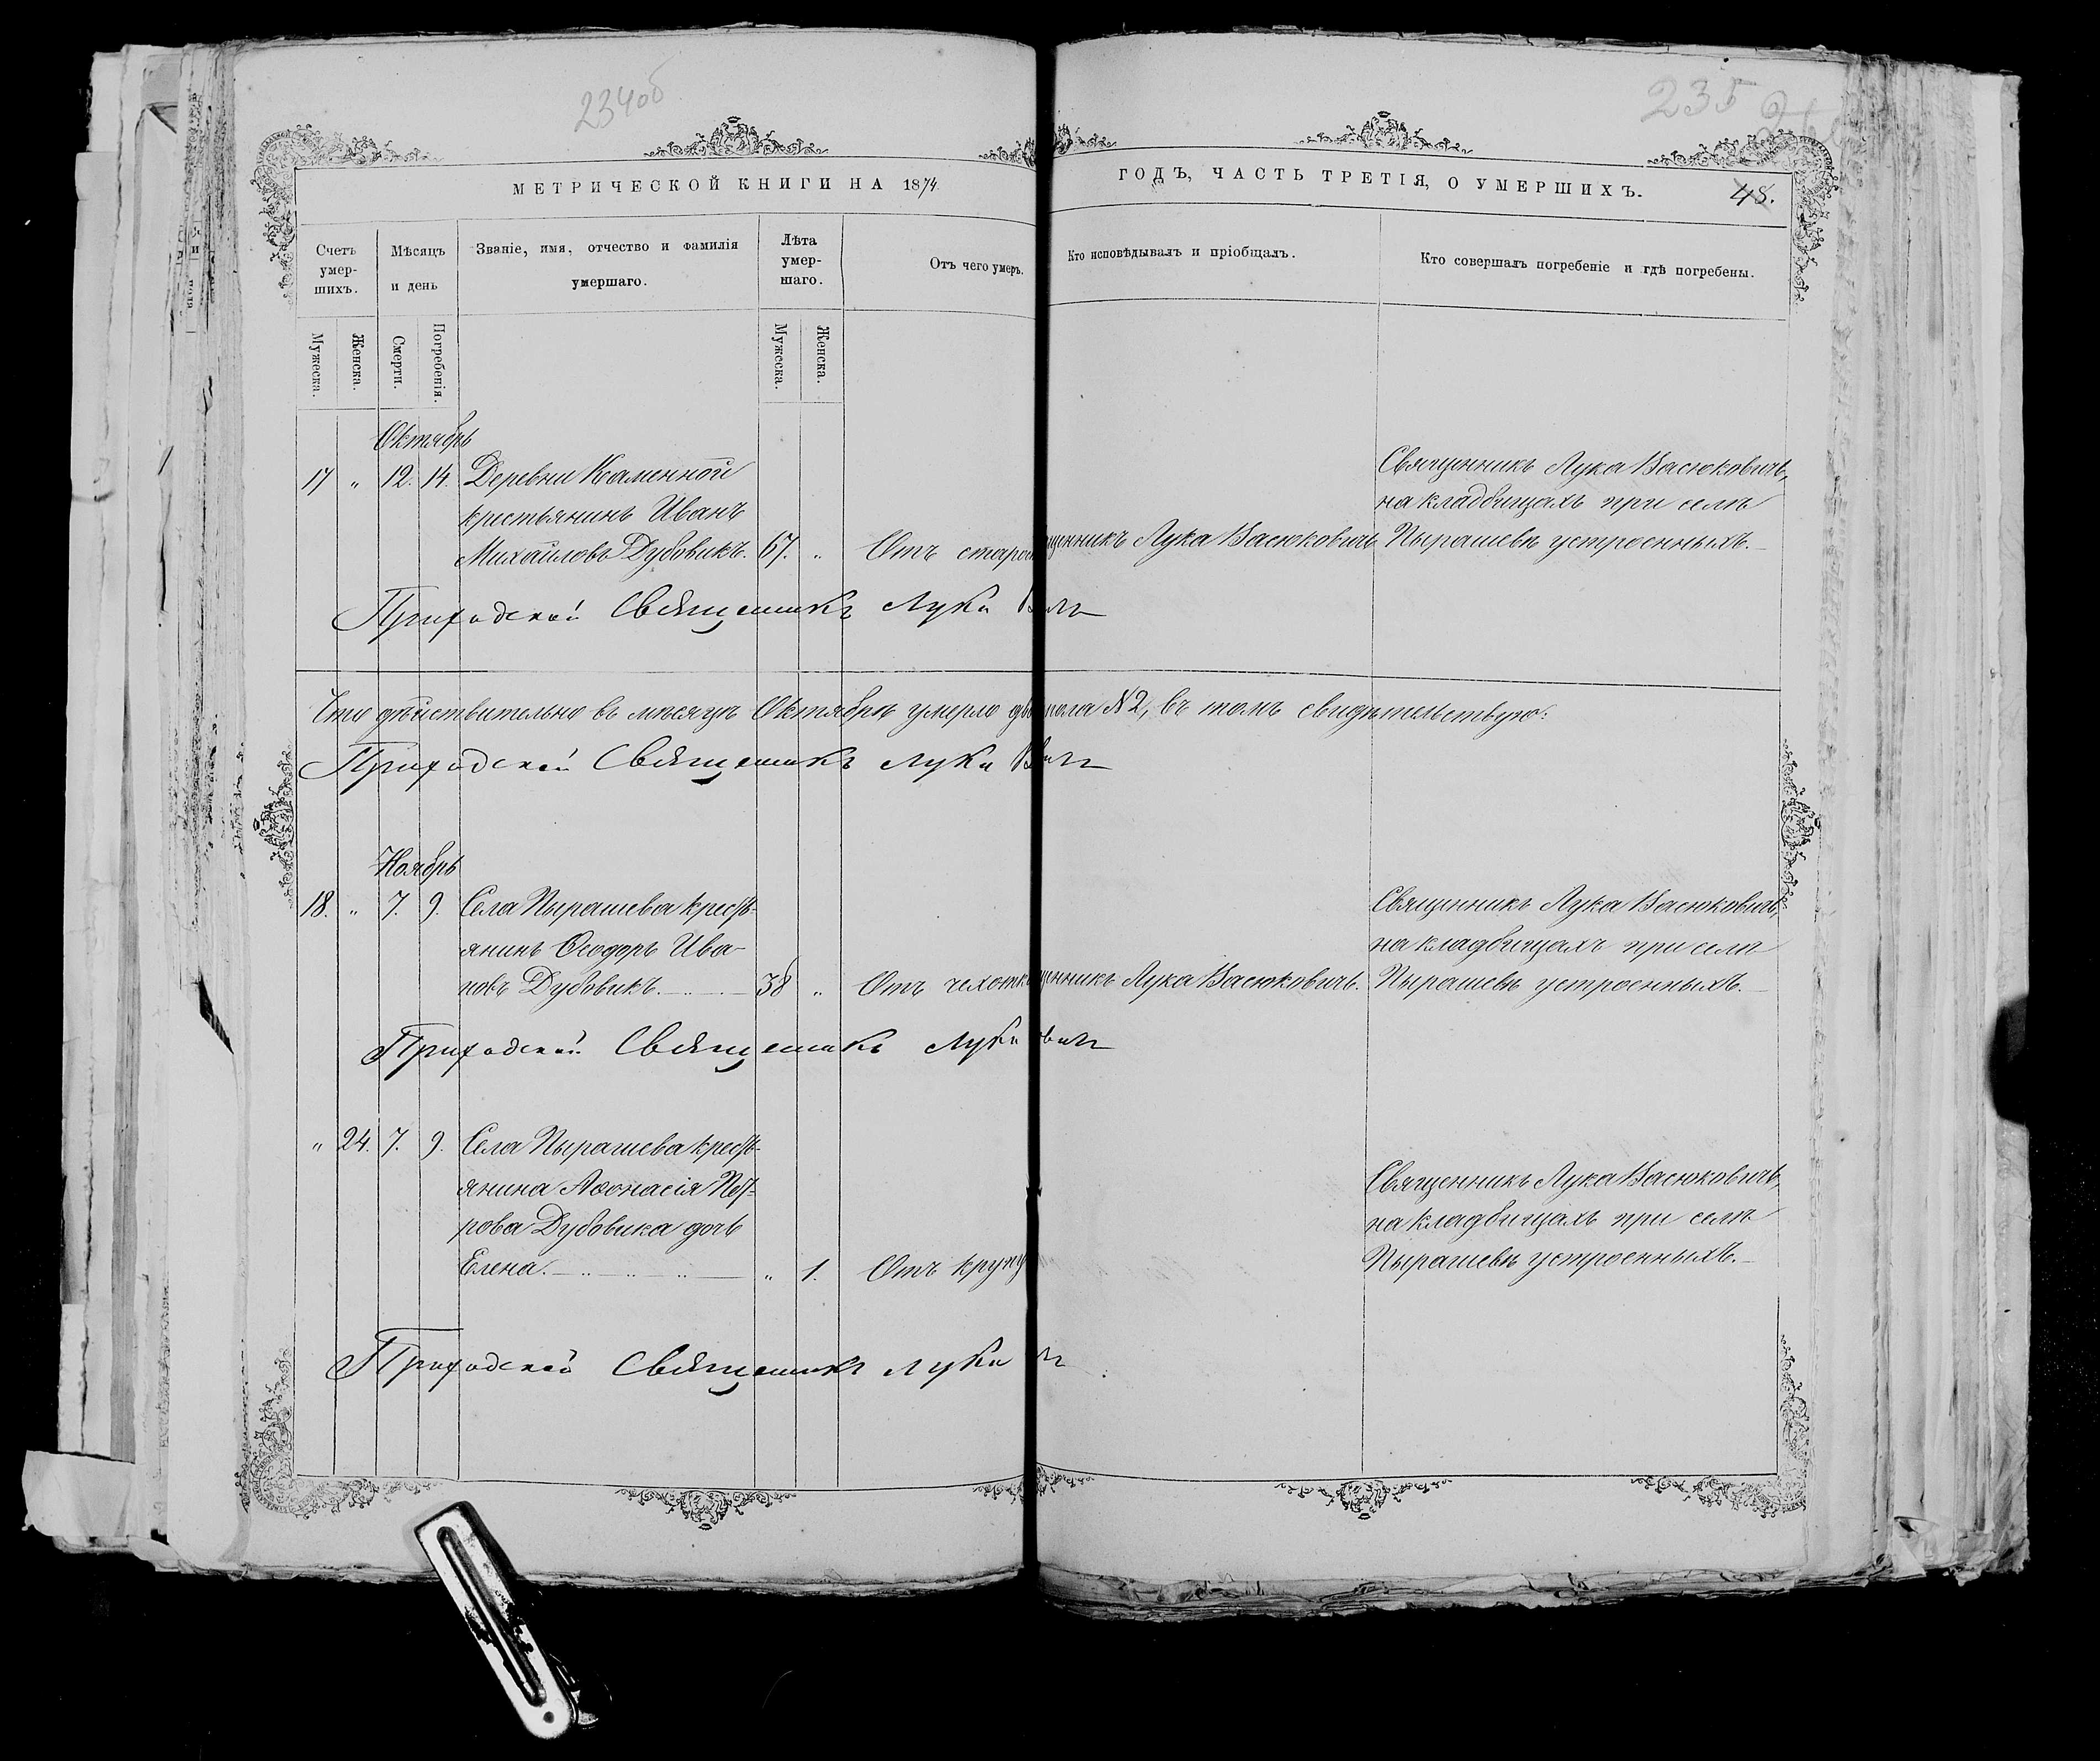 234об
235
МЕТРИЧЕСКОЙ КНИГИ НА 1874
ГОДЪ, ЧАСТЬ ТРЕТІЯ, О УМЕРШИХЪ.
48.
Счетъ умер-шихъ.
Мѣсяцъ и день
Званіе, имя, отчество и фамилія умершаго.
Лѣта умер-шаго.
Отъ чего умеръ.
Кто исповѣдывалъ и пріобщалъ.
Кто совершалъ погребеніе и гдѣ погребены.
Мужеска.
Женска.
Смерти.
Погребенія.
Мужеска.
Женска.
Октябрь
17 „ 12. 14. Деревни Каменной
крестьянинъ Иванъ
Михайловъ Дубовикъ. 67. „ Отъ старос
щенникъ Лука Васюковичъ
Священникъ Лука Васюковичъ,
на кладбищахъ при селѣ
Пырашевѣ устроенныхъ.
Приходской Священникъ Лука
Что дѣйствительно въ мѣсяцѣ Октябрѣ умерло
пола №2, въ томъ свидѣтельствую:
Приходской Священникъ Лука
Ноябрь
18. „ 7. 9. Села Пырашева кресть-
янинъ Ѳеодоръ Ива-
новъ Дубовикъ. 38 „ Отъ чехотк
щенникъ Лука Васюковичъ.
Священникъ Лука Васюковичъ,
на кладбищахъ при селѣ
Пырашевѣ устроенныхъ.
Приходской Священникъ Лука
„ 24. 7. 9. Села Пырашева кресть-
янина Аѳонасія Пет-
рова Дубовика дочь
Елена. „ 1. Отъ круп
Священникъ Лука Васюковичъ,
на кладбищахъ при селѣ
Пырашевѣ устроенныхъ.
Приходской Священникъ Лука